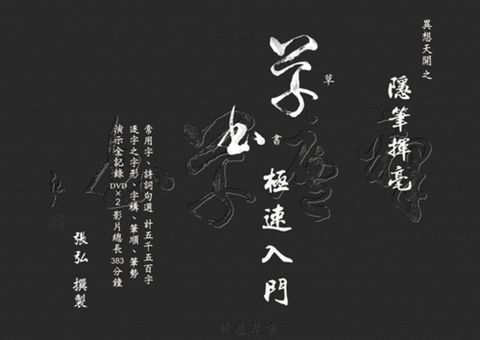 異想天開之
隱筆揮毫
草書極速入門
草
書
常用字、詩詞句選 計五千五百字
逐字之字形、字構、筆順、筆勢
演示全記錄 DVD×2 影片總長383分鐘
張弘 撰製